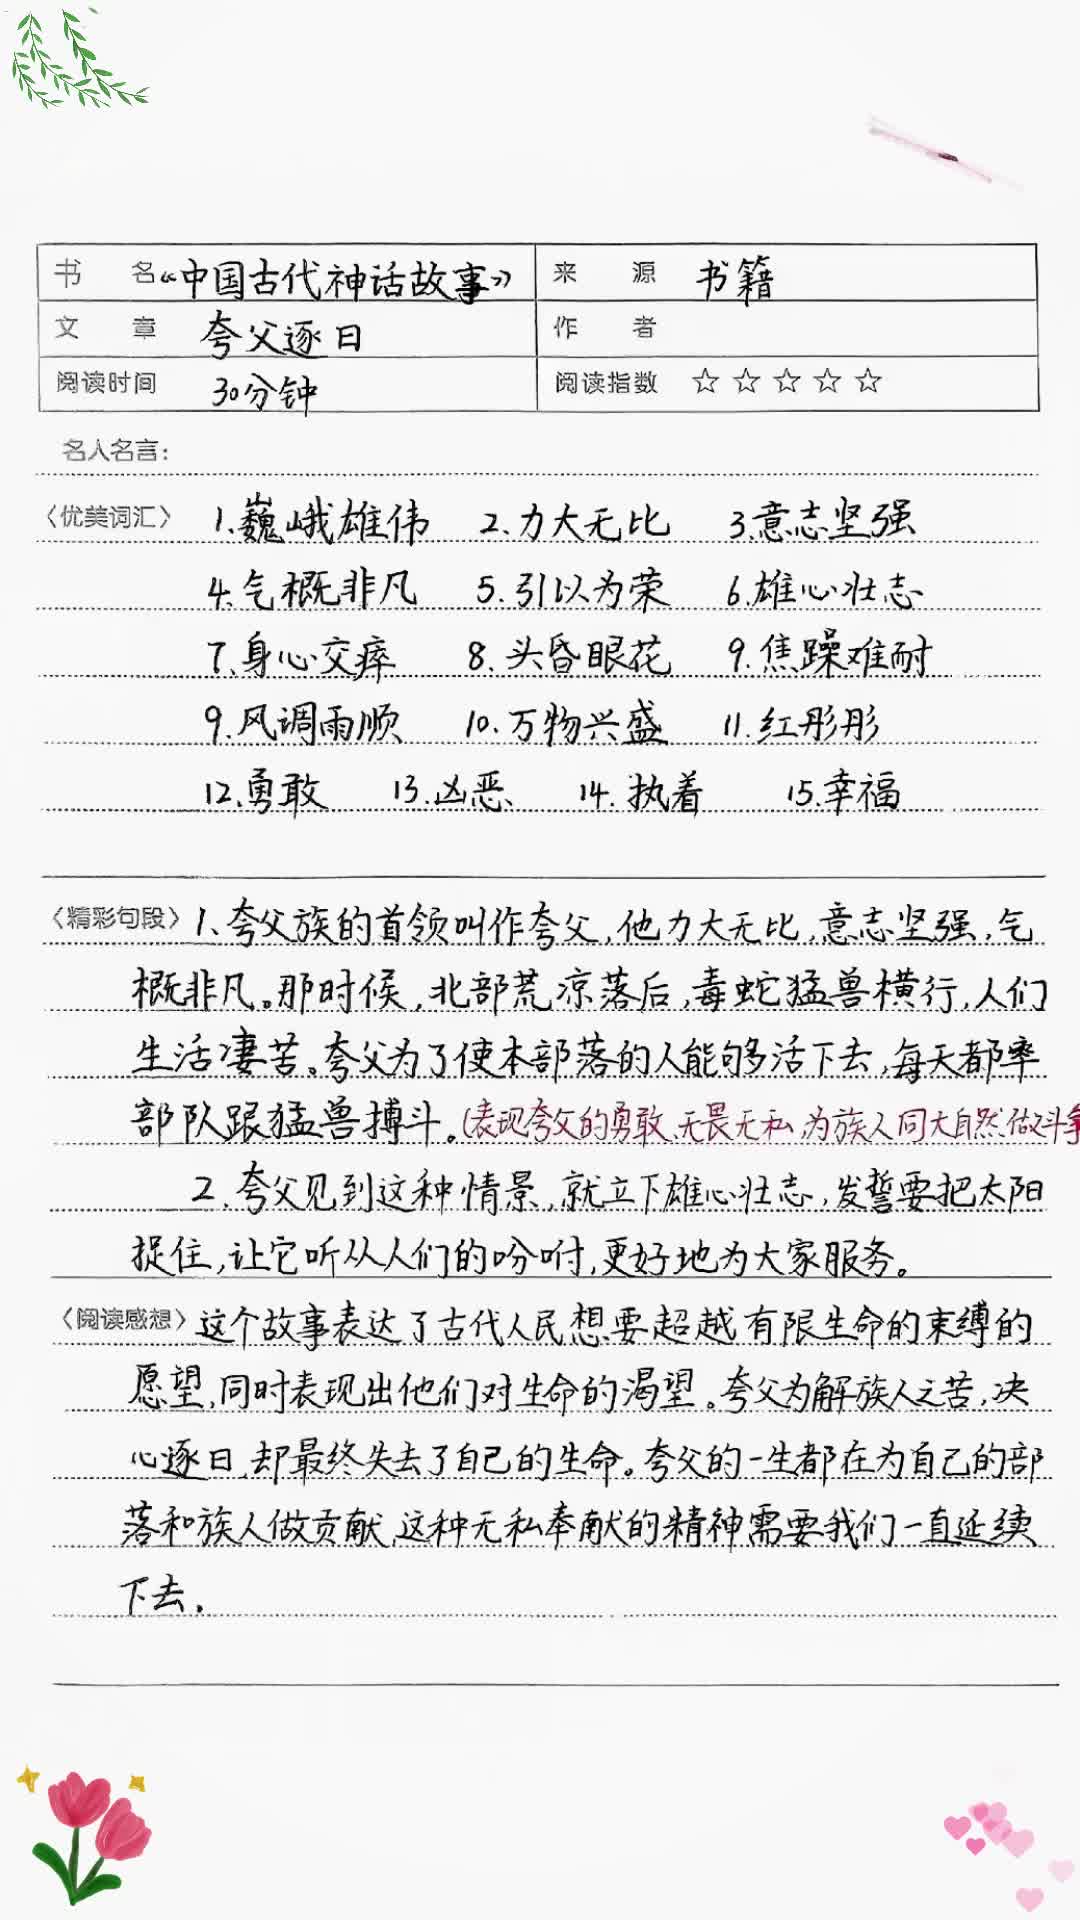 书 名 《中国古代神话故事》 来 源 书籍
文 章 夸父逐日 作 者
阅读时间 30分钟 阅读指数 ☆ ☆ ☆ ☆ ☆
名人名言：
〈优美词汇〉 1.巍峨雄伟 2.力大无比 3.意志坚强
4.气概非凡 5.引以为荣 6.雄心壮志
7.身心交瘁 8.头昏眼花 9.焦躁难耐
9.风调雨顺 10.万物兴盛 11.红彤彤
12.勇敢 13.凶恶 14.执着 15.幸福
〈精彩句段〉 1、夸父族的首领叫作夸父，他力大无比，意志坚强，气
概非凡。那时候，北部荒凉落后，毒蛇猛兽横行，人们
生活凄苦。夸父为了使本部落的人能够多活下去，每天都率
部队跟猛兽搏斗。（表现夸父的勇敢、无畏无私，为族人同大自然做斗争
2.夸父见到这种情景，就立下雄心壮志，发誓要把太阳
捉住，让它听从人们的吩咐，更好地为大家服务。
〈阅读感想〉 这个故事表达了古代人民想要超越有限生命的束缚的
愿望，同时表现出他们对生命的渴望。夸父为解族人之苦，决
心逐日，却最终失去了自己的生命。夸父的一生都在为自己的部
落和族人做贡献，这种无私奉献的精神需要我们一直延续
下去。